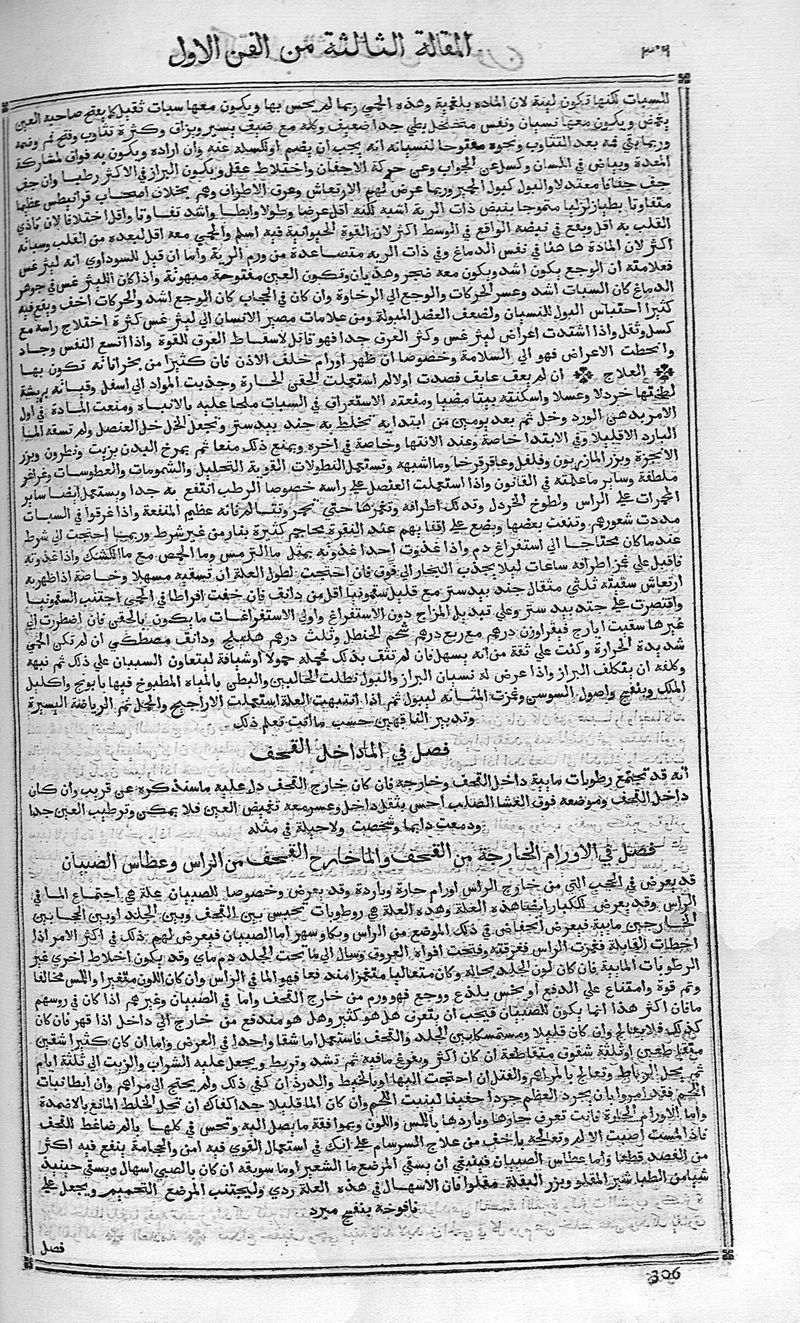 ٣٠٦
المقالة الثالثة من الفن الاول
للسبات لكنها تكون لينة لان المادة بلغمية وهذه الحمي ربما لم يحس بها ويكون معها سبات ثقيل كما يفتح صاحبه العين
يغمض ويكون معها نسيان ونفس متخلخل بطي جدا ضعيف وكله مع ضيف يسير وبزاق وكثرة تثاوب وفتح فم وضمه
وربما بقي فمه بعد التثاوب ونحوه مفتوحا لنسيانه انه يجب ان يضم او لكسله عنه وان اراده ويكون به فواق لمشاركة
المعدة وبياض في اللسان وكسل عن الجواب وعن حركة الاجفان واختلاط عقل ويكون البراز في الاكثر رطبا وان جف
جف جفافا معتدلا والبول كبول الحمير وربما عرض لهم الارتعاش وعرق الاطراف وهم بخلاف اصحاب قرانيطس
متفاوتا بطيا زلزليا متموجا بنبض ذات الرية اشبه لكنه اقل عرضا وطولا وابطا واشد تفاوتا واقل اختلافا لان تاذي
القلب به اقل ويقع في نبضه الواقع في الوسط اكثر لان القوة الحيوانية فيه اسلم والحمي معه اقل لبعده من القلب وسباته
اكثر لان المادة هاهنا في نفس الدماغ وفي ذات الريه متصاعدة من ورم الرية واما ان قيل للسوداوي انه ليثرغس
فعلامته ان الوجع يكون اشد ويكون معه ضجر وهذيان وتكون العين مفتوحة مبهوتة واذا كان الليثرغس في جوهر
الدماغ كان السبات اشد وعسر الحركات والوجع الي الرخاوة وان كان في الحجاب كان الوجع اشد والحركات اخف ويقع فيه
كثيرا احتباس البول للنسيان ولضعف العضل المبولة ومن علامات مصير الانسان الي ليثرغس كثرة اختلاج راسه مع
كسل وثقل واذا اشتدت اعراض ليثرغس وكثر العرق جدا فهو قاتل لاسقاط العرق للقوة واذا اتسع النفس وجاد
وانحطت الاعراض فهو الي السلامة وخصوصا ان ظهر اورام خلف الاذن فان كثيرا من بحراناته تكون بها
العلاج ان لم يعف عايف فصدت اولا ثم استعملت الحقن الحارة وجذبت المواد الي اسفل وقيانه بريشة
لطختها خردلا وعسلا واسكنته بيتا مضيا ومنعته الاستغراق في السبات ملحا عليه بالانباه ومنعت المادة في اول
الامر بدهن الورد وخل ثم بعد يومين من ابتدايه تخلط به جند بيدستر وتجعل الخل خل العنصل ولم تسقه الما
البارد الا قليلا وفي الابتدا خاصة وعند الانتها وخاصة في اخره ويمنع ذلك منعا ثم يمرخ البدن بزيت ونطرون وبزر
الانجرة وبزر المازريون وفلفل وعاقرقرحا وما اشبهه وتستعمل النطولات القوية التحليل والشمومات والعطوسات وغراغر
ملطفة وساير ما علمته في القانون واذا استعملت العنصل علي راسه خصوصا الرطب انتفع به جدا ويستعمل ايضا ساير
المحمرات علي الراس ولطوخ الخردل وتدلك اطرافه وتغمزها حتي تحمر وتتالم فانه عظيم المنفعة واذا غرقوا في السبات
مددت شعورهم وتنتفت بعضها ويضع علي اقفايهم عند النقرة محاجم كثيرة بنار من غير شرط وربما احتجت الي شرط
عند ما كان محتاجا الي استفراغ دم واذا غذوت احدا غذوته بمثل ماالترمس وما الحمص مع ماالكشك واذا غذوته
فاقبل علي غمز اطرافه ساعات ليلا يجذب البخار الي فوق فان احتجت لطول العلة ان تسقيه مسهلا وخاصة اذا ظهر به
ارتعاش سقيته ثلثي مثقال جند بيدستر مع قليل سقمونيا اقل من دانق فان خفت افراطا في الحمي اجتنب السقمونيا
واقتصرت علي جند بيد ستر وعلي تبديل المزاج دون الاستفراغ واولي الاستفراغات ما يكون بالحقن فان اضطررت الي
غيرها سقيت ايارج فيقرا وزن درهم مع ربع درهم شحم الحنطل وثلث درهم هليلج ودانق مصطكي ان لم تكن الحمي
شديدة الحرارة وكنت علي ثقة من انه يسهل فان لم تثق بذلك فحمله حمولا او شيافة ليتعاون السببان علي ذلك ثم نبهه
وكلفه ان يتكلف البراز واذا عرض له نسيان البراز والبول نطلت الحالبين والبطن بالمياه المطبوخ فيها بابونج واكليل
الملك وبنفسج واصول السوسن وغمزت المثانه ليبول ثم اذا انتبهت العلة استعملت الاراجيح والحمل ثم الرياضة اليسيرة
وتدبير الناقهين حسب ما انت تعلم ذلك
فصل في الما داخل القحف
انه قد تجتمع رطوبات مايية داخل القحف وخارجه فان كان خارج القحف دل عليه ما سنذكره عن قريب وان كان
داخل القحف وموضعه فوق الغشا الصلب احس بثقل داخل وعسر معه تغميض العين فلا يمكن وترطيب العين جدا
ودمعت دايما وشخصت ولا حيلة في مثله
فصل في الاورام الخارجة من القحف والما خارج القحف من الراس وعطاس الصبيان
قد يعرض في الحجب التي من خارج الراس اورام حارة وباردة وقد يعرض وخصوصا للصبيان علة هي اجتماع الما في
الراس وقد يعرض للكبار ايضا هذه العلة وهذه العلة هي رطوبات تحتبس بين القحف وبين الجلد او بين الحجابين
الخارجين مايية فيعرض انخفاض في ذلك الموضع من الراس وبكا وسهر اما الصبيان فيعرض لهم ذلك في اكثر الامر اذا
اخطات القابلة فغمزت الراس ففرقته وفتحت افواه العروق وسال الي ما تحت الجلد دم ماي وقد يكون اخلاط اخري غير
الرطوبات المايية فان كان لون الجلد بحاله وكان متعاليا متغمزا مندفعا فهو الما في الراس وان كان اللون متغيرا واللمس مخالفا
وثم قوة وامتناع علي الدفع او يحس بلذع ووجع فهو ورم من خارج القحف واما في الصبيان وغيرهم اذا كان في روسهم
ما فان اكثر هذا انما يكون للصبيان فيجب ان يتعرف هل هو كثير وهل هو مندفع من خارج الي داخل اذا قهر فان كان
كذلك فلا يعالج وان كان قليلا ومستمسكا بين الجلد والقحف فاستعمل اما شقا واحدا في العرض واما ان كان كثيرا شقين
متقاطعين او ثلثة شقوق متقاطعة ان كان اكثر ويفرغ ما فيه ثم تشد وتربط ويجعل عليه الشراب والزيت الي ثلثة ايام
ثم يحل الرباط وتعالج بالمراهم والفتل ان احتجت اليها او بالخيط والدرد ان كفي ذلك ولم يحتج الي مراهم وان ابطا نبات
اللحم فقد امروا بان يجرد العظم جردا خفيفا لينبت اللحم وان كان الما قليلا جدا كفاك ان تحل الخلط المانع بالاضمدة
واما الاورام الحارة فانت تعرف حارها وباردها باللمس واللون وبموافقة ما يصل اليه وتحس في كلها بالم ضاغط للقحف
فاذا لمست اصبت الالم وتعالجه باخف من علاج السرسام علي انك في استعمال القوي فيه امن والحجامة ينفع فيه اكثر
من الفصد قطعا واما عطاس الصبيان فينبغي ان يسقي المرضع ما الشعير او ما سويقه ان كان بالصبي اسهال ويسقي حينيذ
شيا من الطباشير المقلو وبزر البقلة مقلوا فان الاسهال في هذه العلة ردي وليجتنب المرضع التحميم ويجعل علي
نافوخه بنفسج مبرد
فصل
306